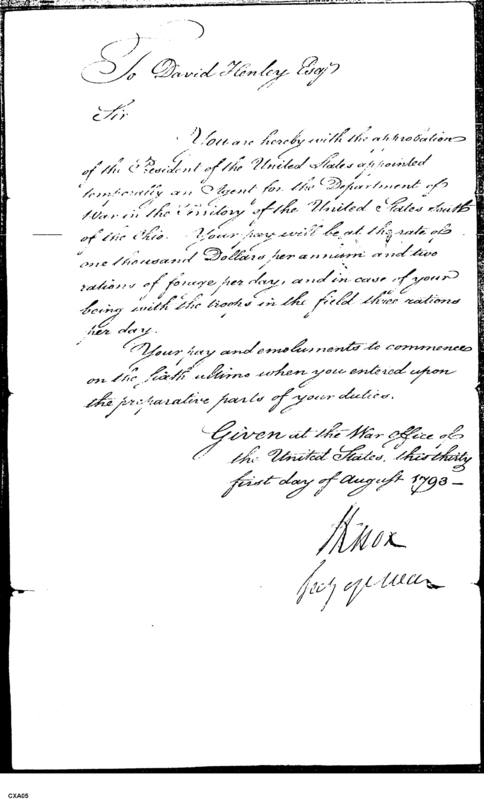 To David Henley Esqr
Sir
You are hereby with the approbation
of the President of the United States appointed
temporally an Agent for the Department of
War in the Territory of the United States South
of the Ohio. Your pay will be at the rate of
one thousand Dollars per annum and two
rations of forage per day, and in case of your
being with the troops in the field three rations
per day.
Your pay and emoluments to commence
on the Sixth ultimo when you entered upon
the preparative parts of your duties.
Given at the War Office of
the United States, this thirty
first day of August 1793—
HKnox
Secy of War
CXA05